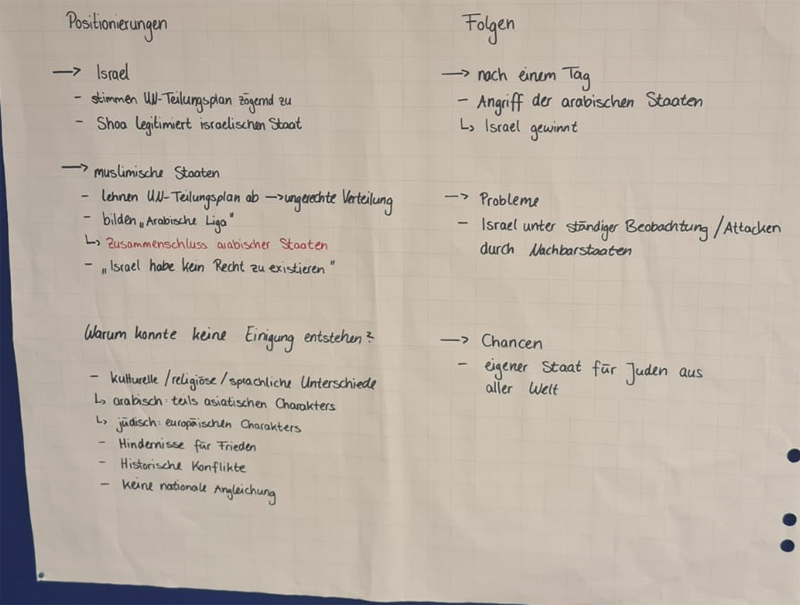 Positionierungen
→ Israel
- stimmen UN-Teilungsplan zögernd zu
- Shoa legitimiert israelischen Staat
→ muslimische Staaten
- lehnen UN-Teilungsplan ab → ungerechte Verteilung
- bilden „Arabische Liga"
↳ Zusammenschluss arabischer Staaten
- „Israel habe kein Recht zu existieren"
Warum konnte keine Einigung entstehen?
- kulturelle/religiöse/sprachliche Unterschiede
↳ arabisch: teils asiatischen Charakters
↳ jüdisch: europäischen Charakters
- Hindernisse für Frieden
- Historische Konflikte
- keine nationale Angleichung
Folgen
→ nach einem Tag
- Angriff der arabischen Staaten
↳ Israel gewinnt
→ Probleme
- Israel unter ständiger Beobachtung/Attacken
durch Nachbarstaaten
→ Chancen
- eigener Staat für Juden aus
aller Welt